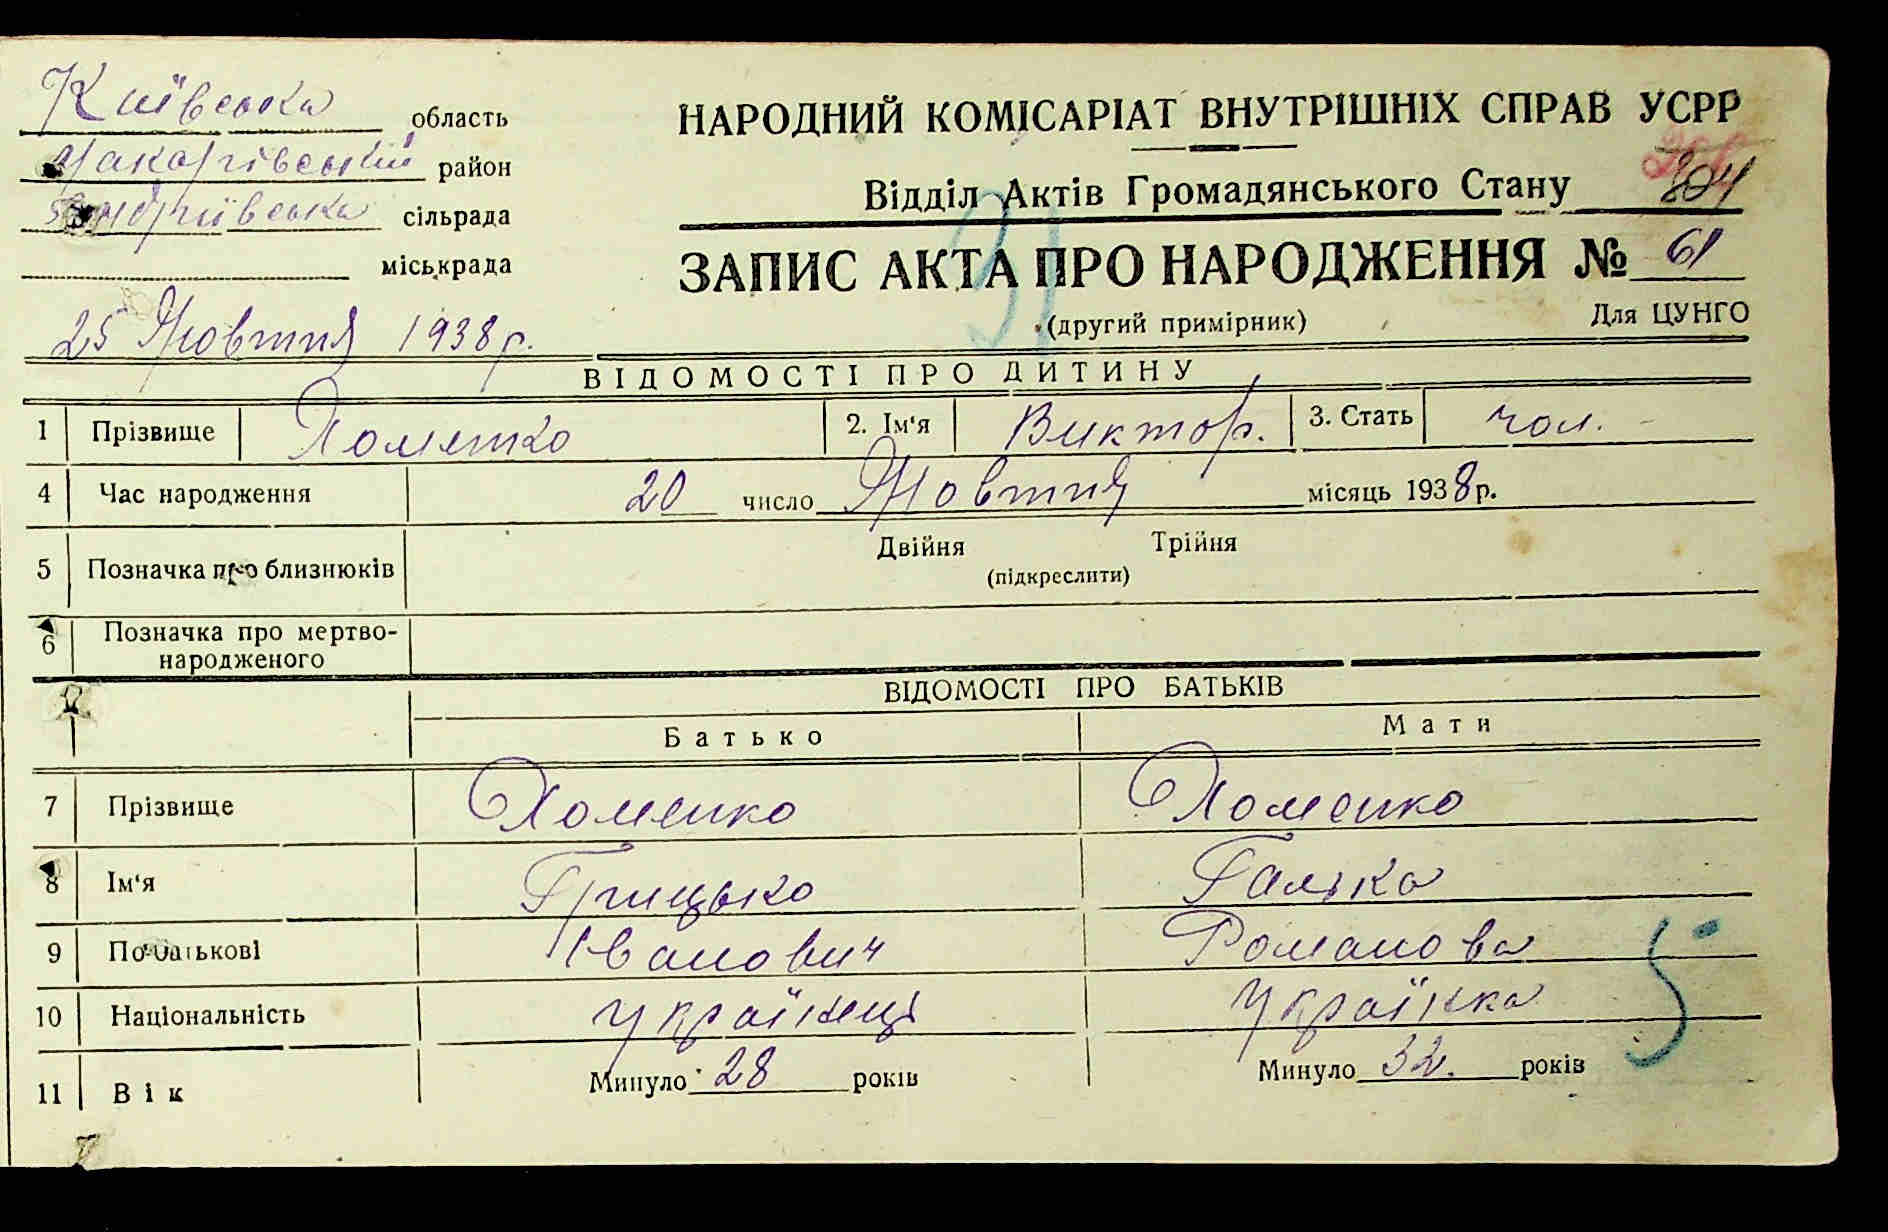 Київська область
Макарівський район
сільрада
міськрада
25 Жовтня 1938 р.
НАРОДНИЙ КОМІСАРІАТ ВНУТРІШНІХ СПРАВ УСРР
Відділ Актів Громадянського Стану
204
ЗАПИС АКТА ПРО НАРОДЖЕННЯ № 61
31
(другий примірник) Для ЦУНГО
ВІДОМОСТІ ПРО ДИТИНУ
1 Прізвище Хоменко 2. Ім'я Виктор. 3. Стать чол.
4 Час народження 20 число Жовтня місяць 1938 р.
5 Позначка про близнюків Двійня Трійня
(підкреслити)
6 Позначка про мертво-
народженого
ВІДОМОСТІ ПРО БАТЬКІВ
Батько Мати
7 Прізвище Хоменко Хоменко
8 Ім'я Грицько Галька
9 По батькові Іванович Романова
10 Національність Українець Українка
5
11 Вік Минуло 28 років Минуло 32. років